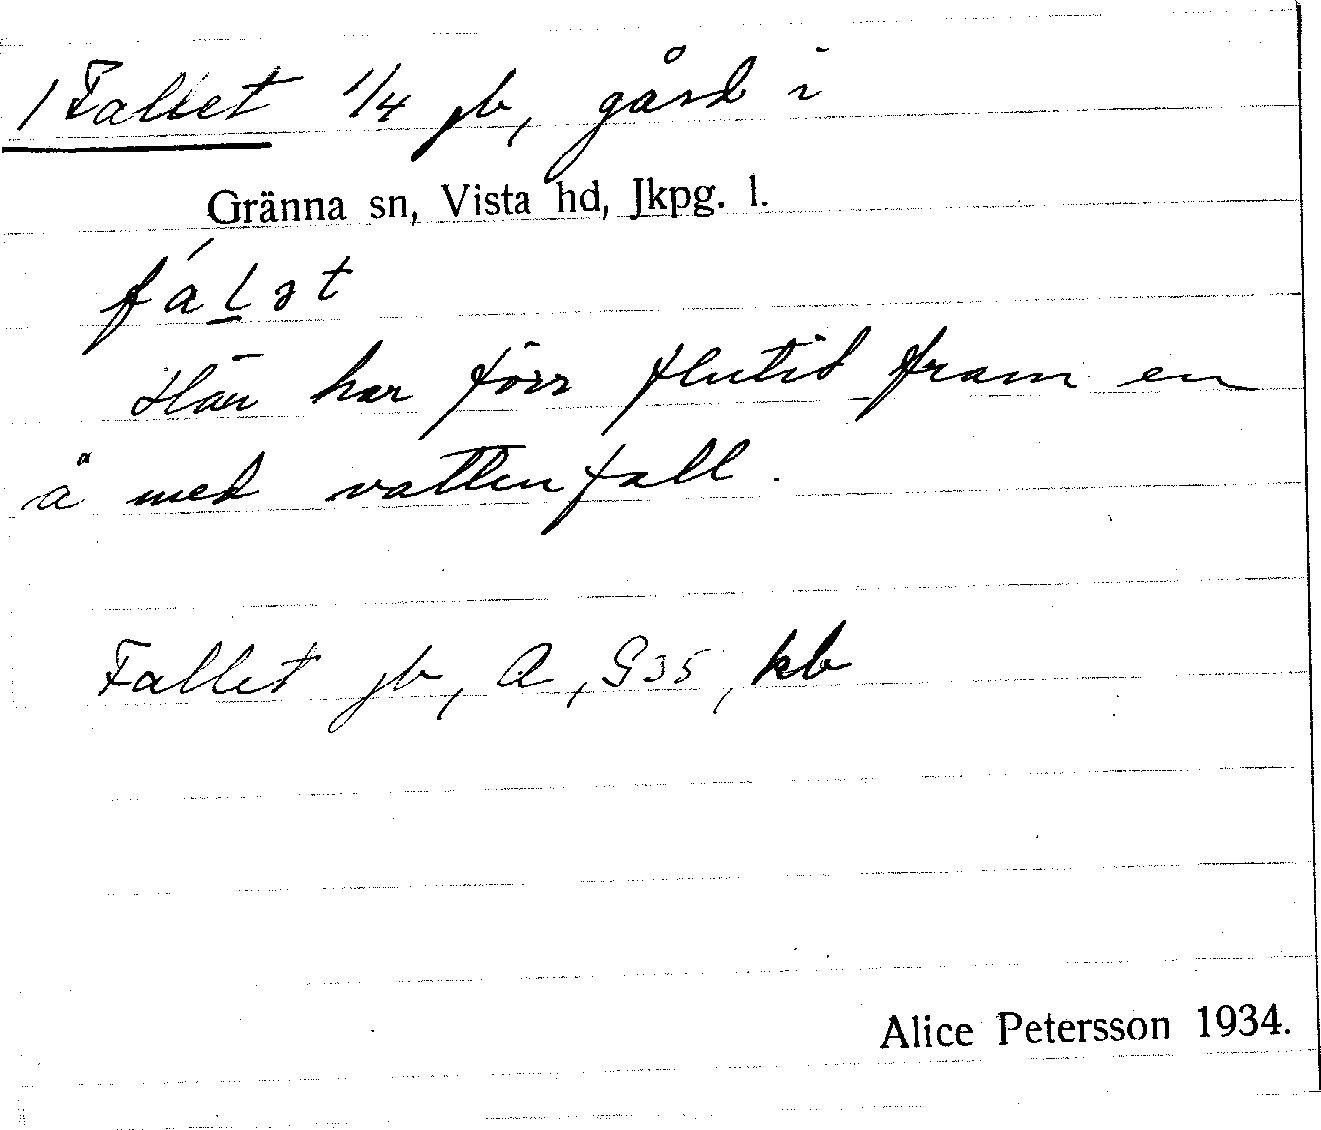 / Fallet 1/4 jb, gård i
Gränna sn, Vista hd, Jkpg. l.
fál̲ət
Här har förr flutid fram en
å med vattenfall.
Fallet jb, A, G35, kb
Alice Petersson 1934.